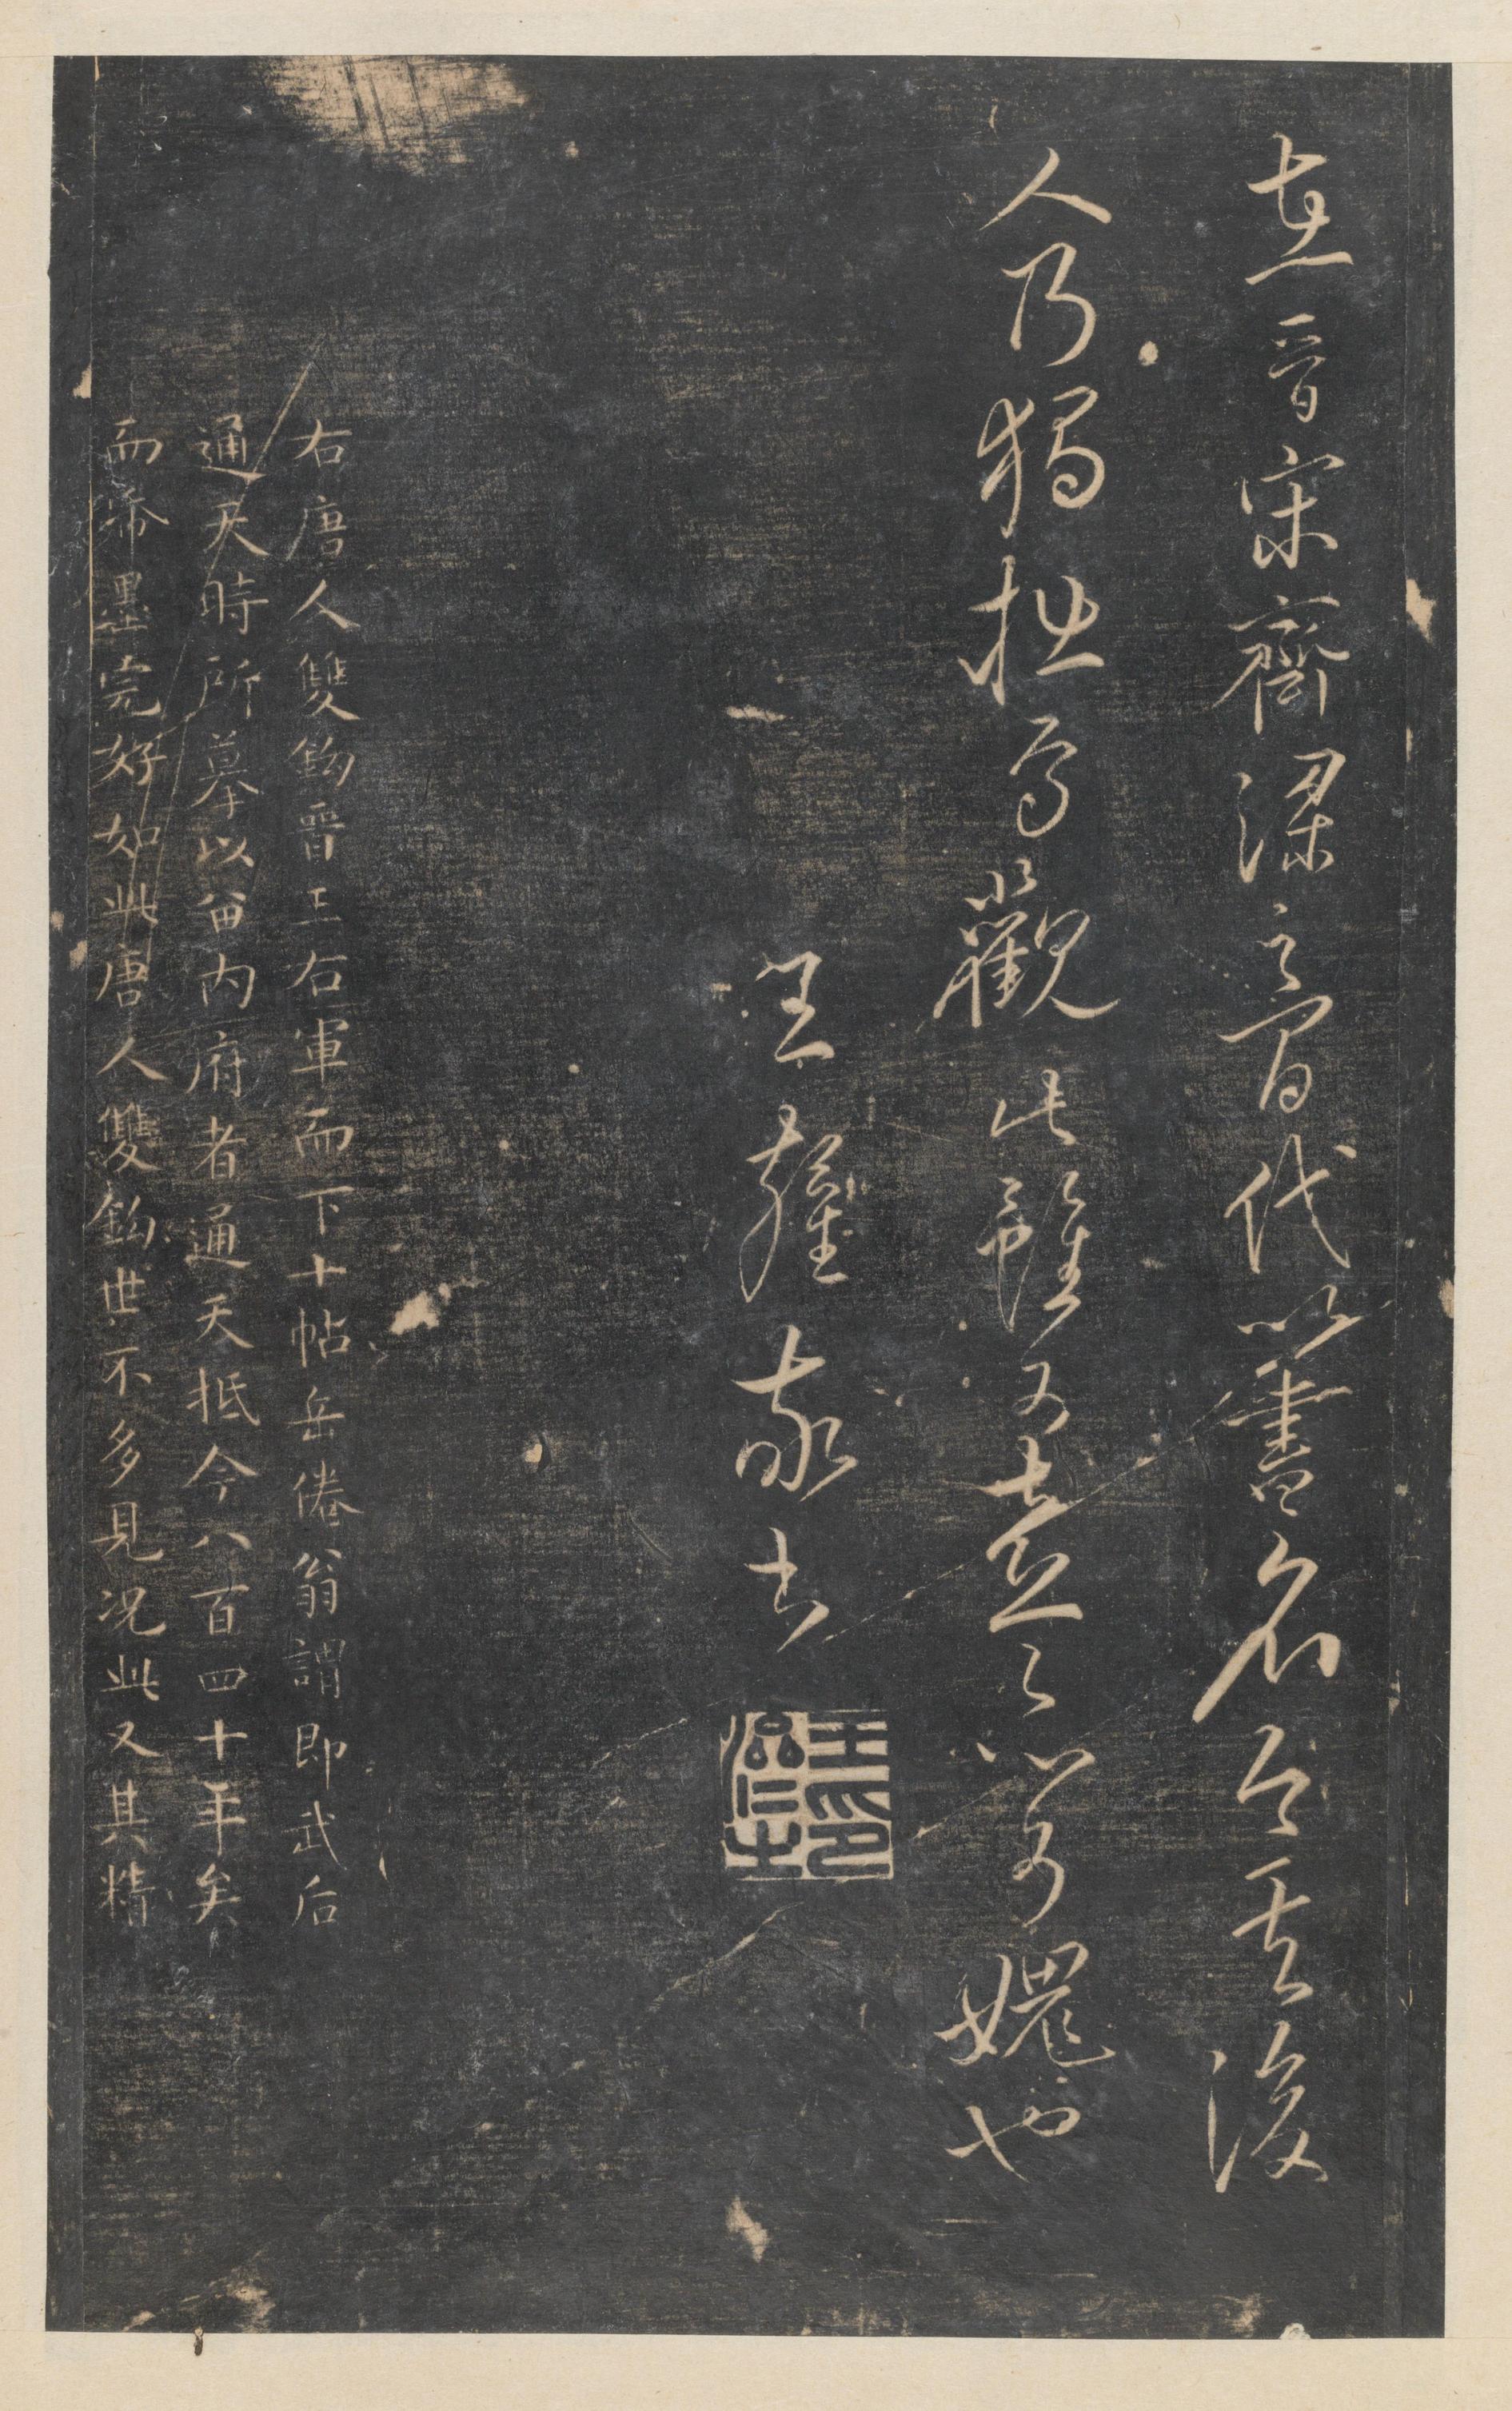 在晉宋齊梁之間代以書名其後
人乃獨拙焉觀此雖可喜亦可媿也
王
右唐人雙鈎晉王右軍而下十帖岳倦翁謂即武后
通天時所摹以留内府者通天抵今八百四十年矣
而帋墨完好如此唐人雙鈎世不多見況此又其精